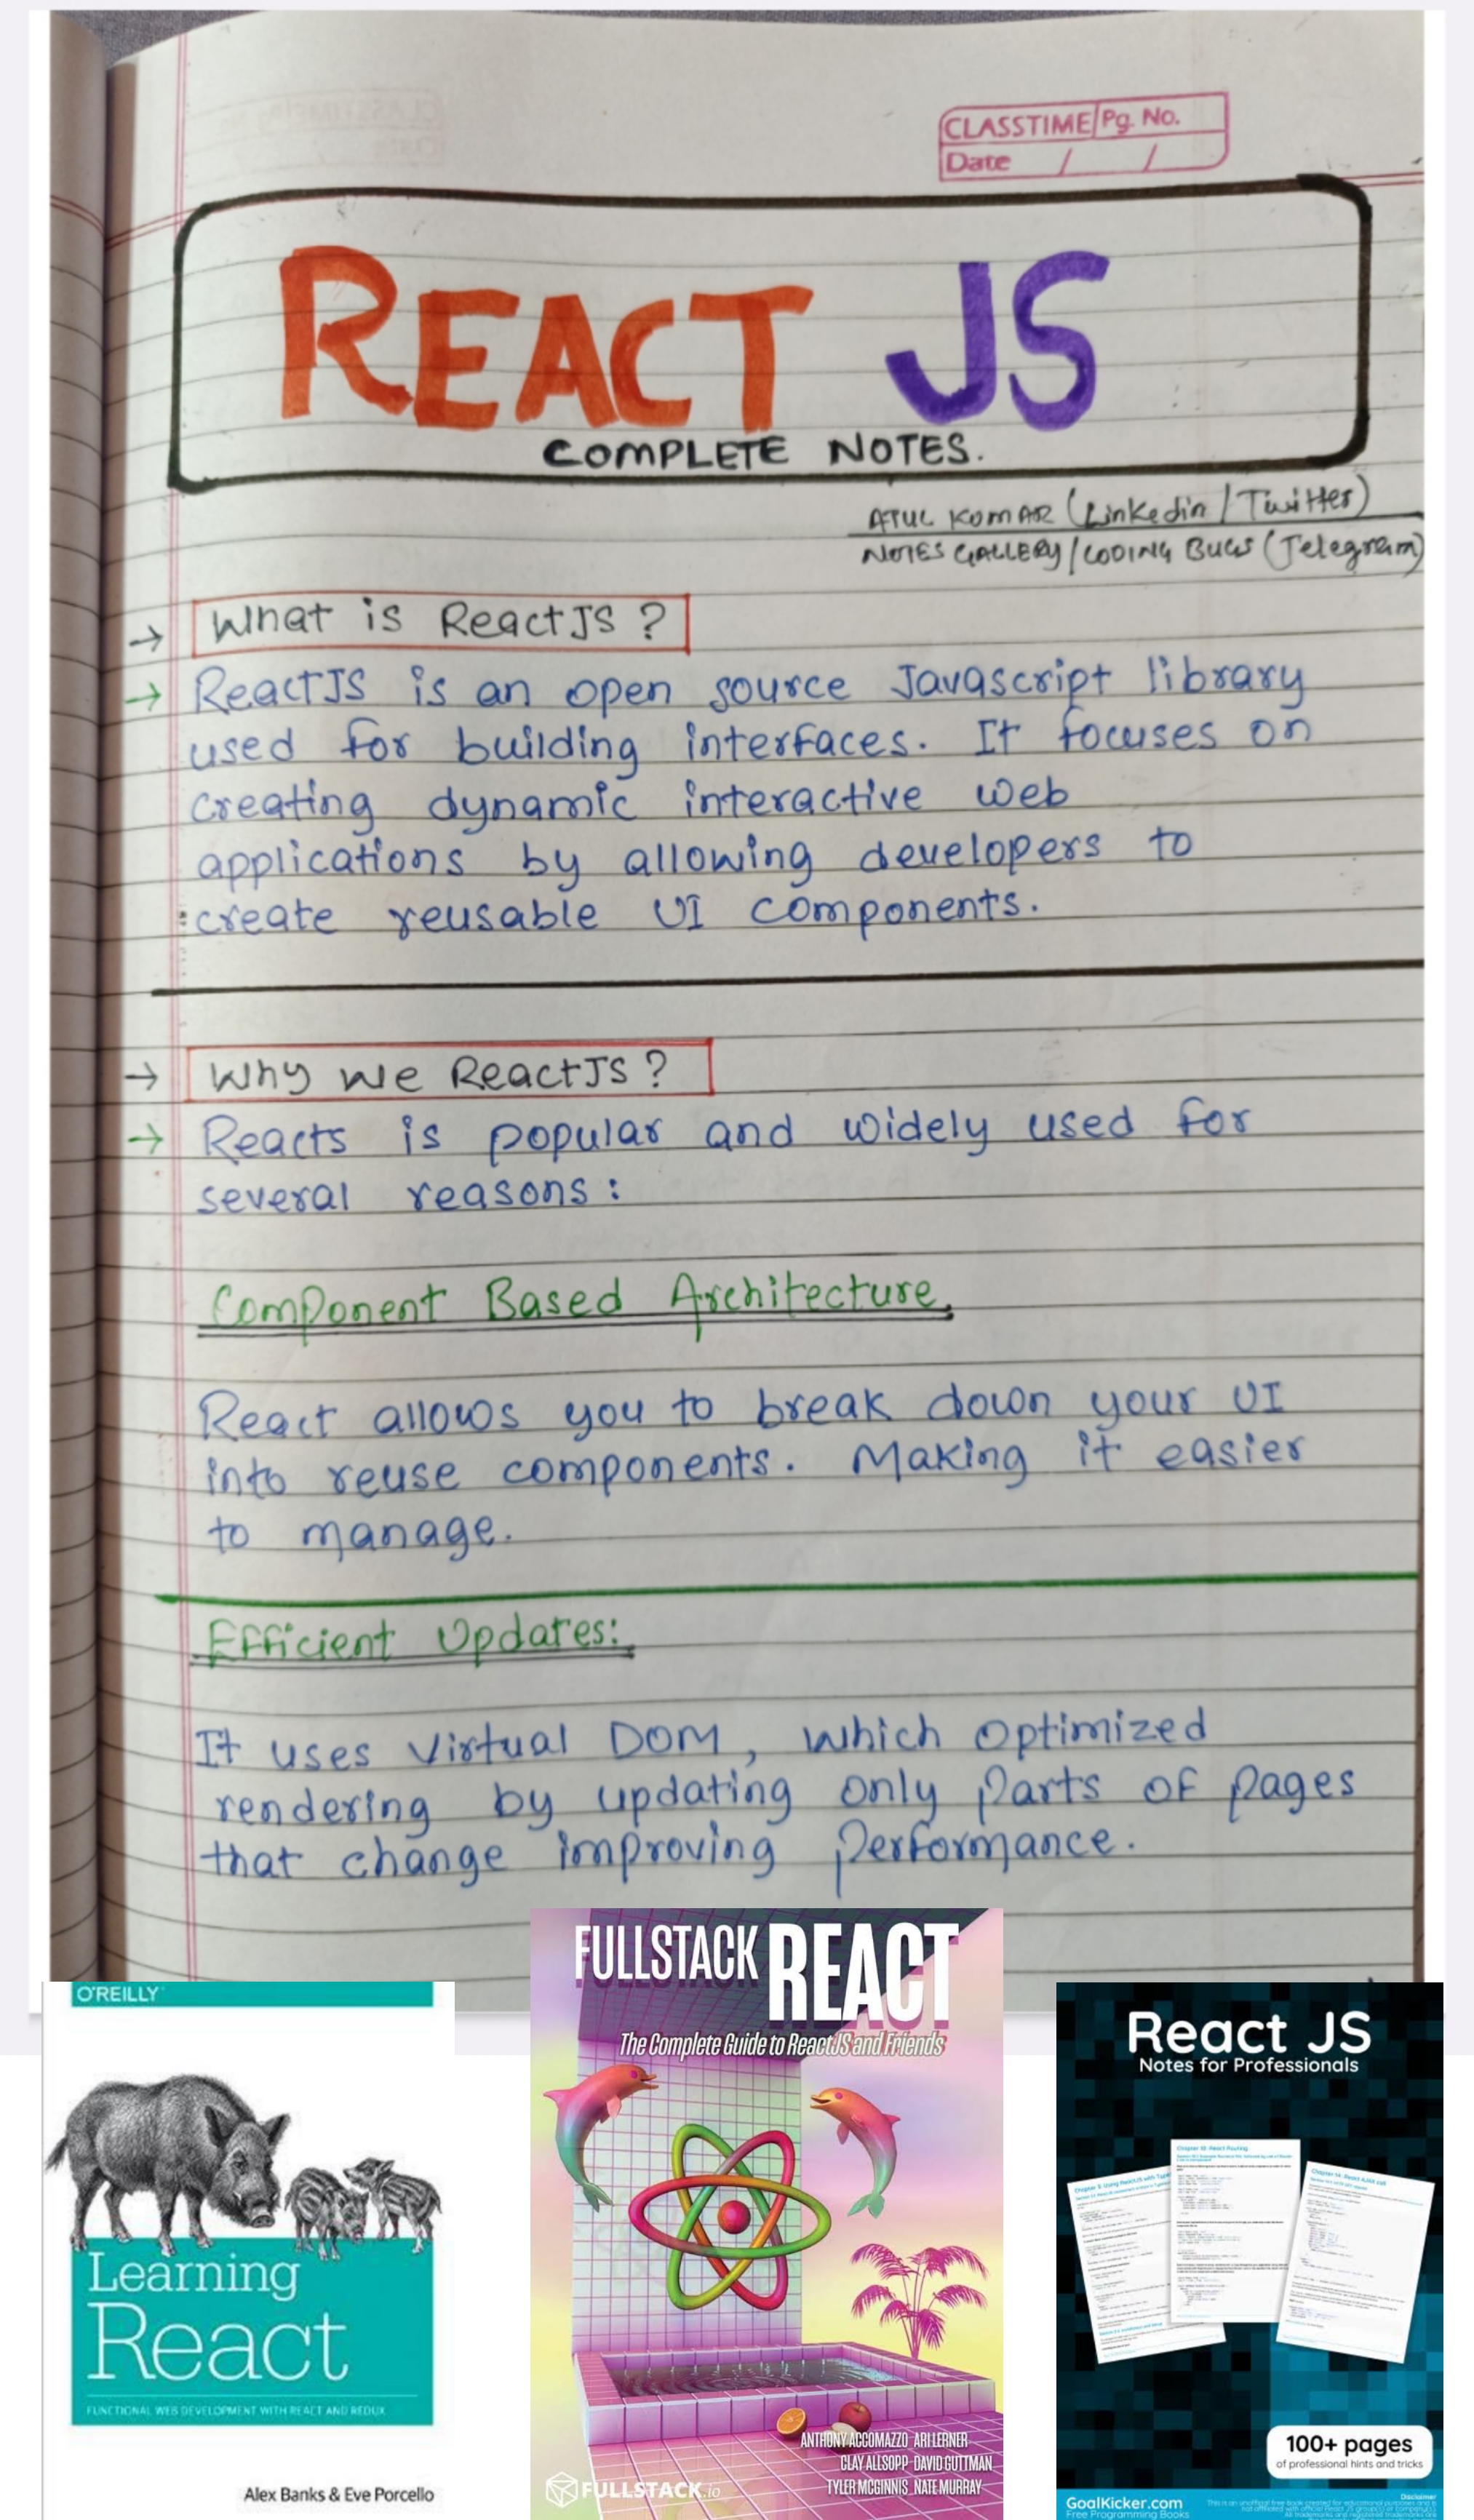 CLASSTIME Pg. No.
Date / /
REACT JS
COMPLETE NOTES.
ATUL KUMAR (Linkedin / Twitter)
NOTES GALLERY / CODING BUGS (Telegram)
→ What is ReactJS ?
→ ReactJS is an open source Javascript library
used for building interfaces. It focuses on
creating dynamic interactive web
applications by allowing developers to
create reusable UI components.
→ Why we ReactJS ?
→ Reacts is popular and widely used for
several reasons :
Component Based Architecture
React allows you to break down your UI
into reuse components. Making it easier
to manage.
Efficient Updates:
It uses Virtual DOM, which optimized
rendering by updating only parts of pages
that change improving performance.
O'REILLY
Learning
React
FUNCTIONAL WEB DEVELOPMENT WITH REACT AND REDUX
Alex Banks & Eve Porcello
FULLSTACK REACT
The Complete Guide to ReactJS and Friends
ANTHONY ACCOMAZZO ARI LERNER
CLAY ALLSOPP DAVID GUTTMAN
TYLER MCGINNIS NATE MURRAY
FULLSTACK.io
React JS
Notes for Professionals
Chapter 18: React Routing
Chapter 14: React AJAX call
100+ pages
of professional hints and tricks
GoalKicker.com
Free Programming Books
Disclaimer